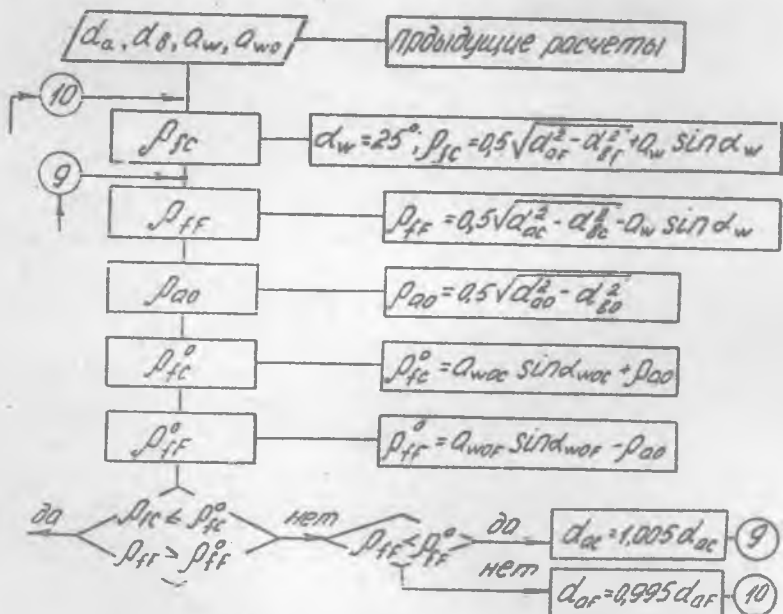 d_a, d_в, a_w, a_wo
прдыдущие расчеты
10
ρ_fc
α_w = 25°; ρ_fc = 0,5√(d²_aF − d²_вF) + a_w sin α_w
9
ρ_fF
ρ_fF = 0,5√(d²_ac − d²_вc) − a_w sin α_w
ρ_ao
ρ_ao = 0,5√(d²_ao − d²_вo)
ρ°_fc
ρ°_fc = a_woc sin α_woc + ρ_ao
ρ°_fF
ρ°_fF = a_woF sin α_woF − ρ_ao
да
ρ_fc ≤ ρ°_fc
ρ_fF ≥ ρ°_fF
нет
ρ_fF ≤ ρ°_fF
да
d_ac = 1,005 d_ac
9
нет
d_aF = 0,995 d_aF
10